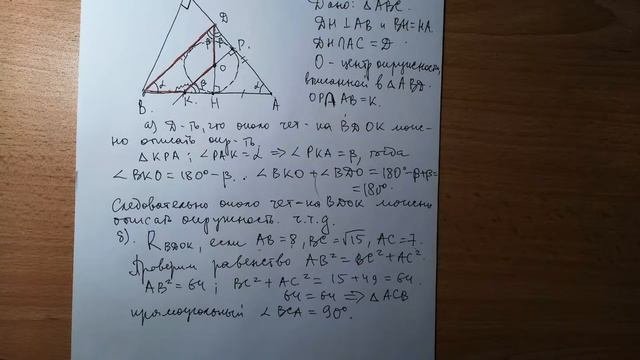 Дано: ΔABC.
DH⊥AB и BH=HA.
DH∩AC=D
O - центр окружности,
вписанной в ΔABD.
OP∩AB=K.
D
β β
P.
O
α β α
B. K. H A
а) Д-ть, что около чет-ка BDOK мож-
но описать окр-ть.
ΔKPA; ∠PAK=α ⇒ ∠PKA=β, тогда
∠BKO=180°-β. . ∠BKO+∠BDO=180°-β+β=
=180°.
Следовательно около чет-ка BDOK можно
описать окружность. ч.т.д.
б). R BDOK, если AB=8, BC=√15, AC=7.
Проверим равенство AB²=BC²+AC².
AB²=64; BC²+AC²=15+49=64.
64=64 ⇒ ΔACB
прямоугольный ∠BCA=90°.